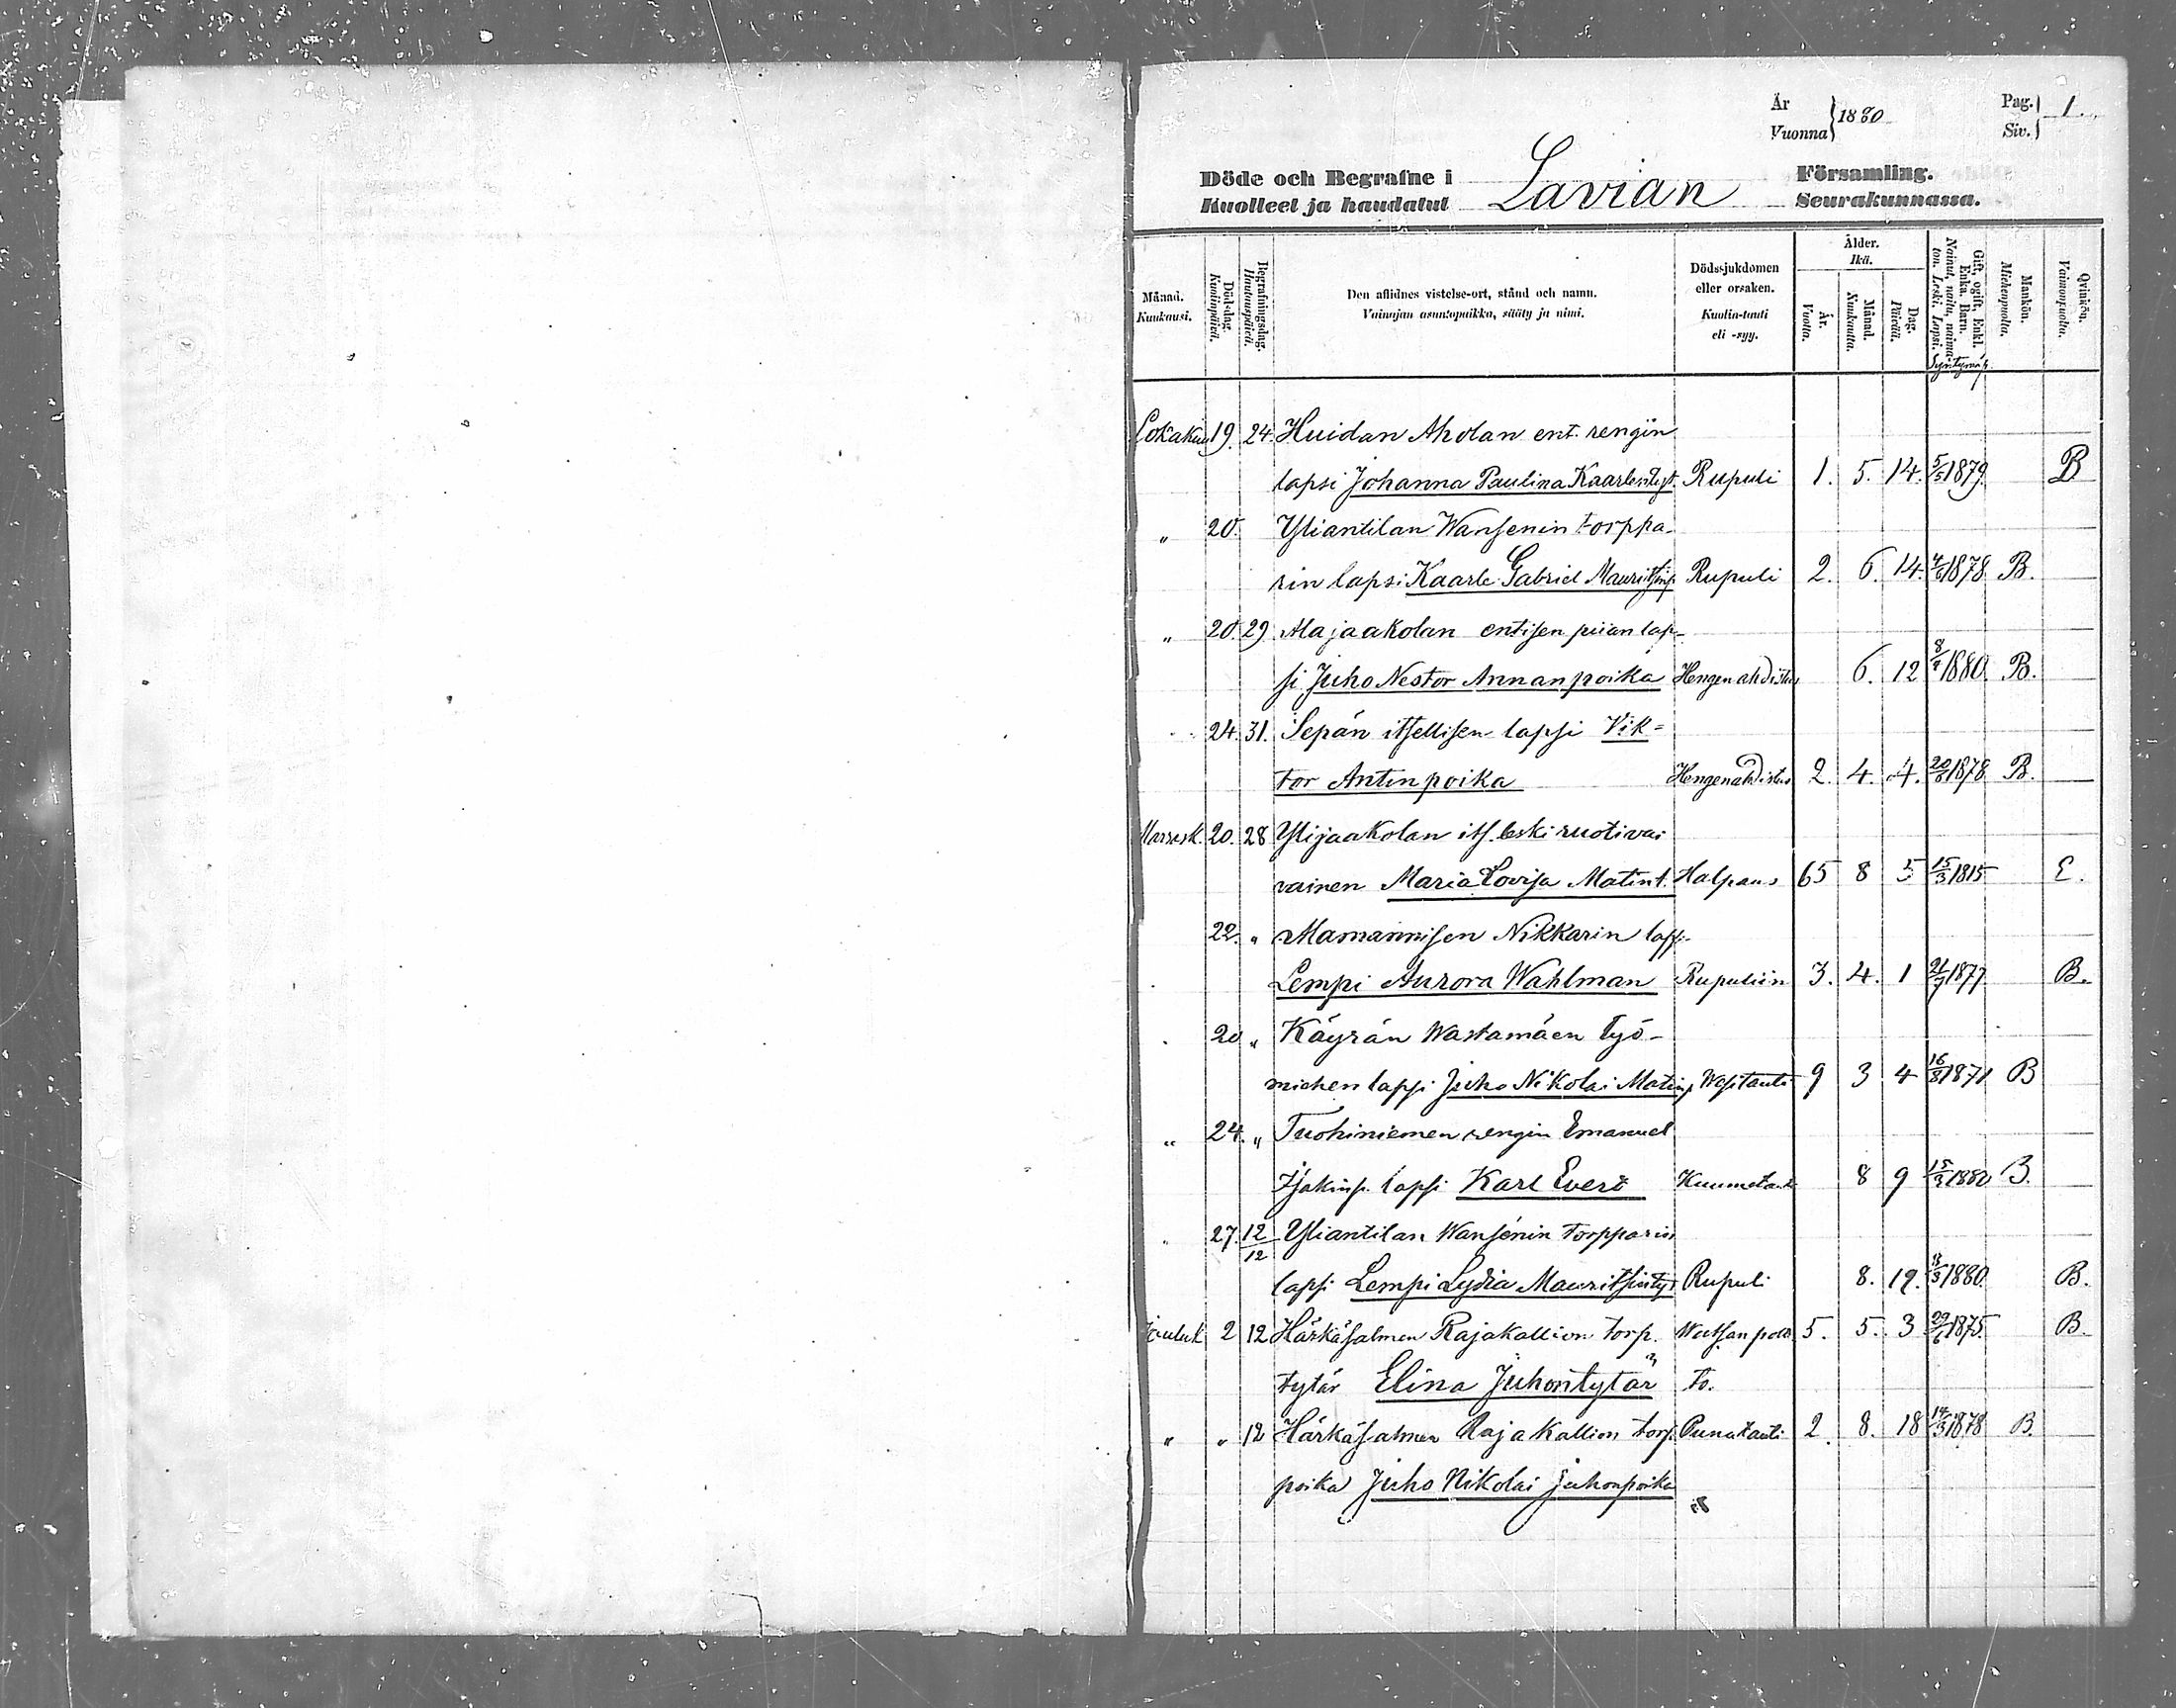 År
Vuonna } 1880
Pag.
Siv. } 1.
Döde och Begrafne i
Kuolleet ja haudatut
Lavian
Församling.
Seurakunnassa.
Månad. Kuukausi.
Döds-dag. Kuolinpäivä.
Begrafningsdag. Hautauspäivä.
Den aflidnes vistelse-ort, stånd och namn.
Vainajan asuntopaikka, sääty ja nimi.
Dödssjukdomen eller orsaken.
Kuolin-tauti eli -syy.
Ålder. Ikä.
År. Vuotta.
Månad. Kuukautta.
Dag. Päivää.
Gift, ogift, Enkl. Enka. Barn.
Nainut, naitu, naimaton. Leski. Lapsi.
Mankön. Miehenpuolta.
Qvinkön. Vaimonpuolta.
Lokakuu 19. 24. Huidan Aholan ent. rengin
lapsi Johanna Paulina Kaarlentyt. Rupuli 1. 5. 14. 5/5 1879. B
" 20. Yliantilan Wansenin torppa-
rin lapsi Kaarle Gabriel Mauritsinp. Rupuli 2. 6. 14. 1878 B.
" 20. 29 Alajaakolan entisen piian lap-
si Juho Nestor Annanpoika Hengenahdistus 6. 12 1880. B.
24. 31. Sepän itsellisen lapsi Vik=
tor Antinpoika Hengenahdistus 2. 4. 4. 20/6 1878. B.
Marrask. 20. 28 Ylijaakolan its. leski ruotivai
vainen Maria Lovisa Matint. Halpaus 65 8 5 15/3 1815 E.
22. " Mamannisen Nikkarin lapsi
Lempi Aurora Wahlman Rupuliin 3. 4. 1 21/7 1877 B.
20 " Käyrän Wastamäen Työ-
miehen lapsi Juho Nikolai Matinp. Wesitauti 9 3 4 16/8 1871 B
" 24. " Tuohiniemen rengin Emanuel
Isakinp. lapsi Karl Evert Kuumetauti 8 9 15/3 1880 B.
" 27. 12/12 Yliantilan Wansenin torpparin
lapsi Lempi Lydia Mauritsintyt Rupuli 8. 19. 1880. B.
Jouluk 2 12 Härkäsalmen Rajakallion torp. Watsanpolt 5. 5. 3 29/6 1875. B.
tytär Elina Juhontytär to.
" " 12 Härkäsalmen Rajakallion torp. Punatauti 2. 8. 18 14/3 1878 B.
poika Juho Nikolai Juhonpoika